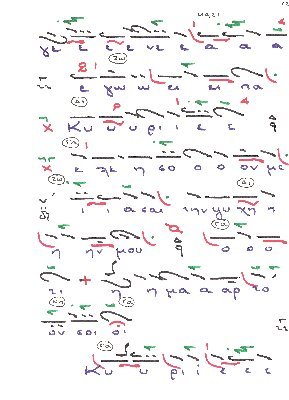 γε ε ε ε νε ε α α α
ε γω ω ει ει πα
Κυ υ υ ρι ι ε ε
ε λε η σο ο ο ον με
ι ι α σαι την ψυ χη η
η ην μου ο ο ο
τι η η μα α αρ το
ον σοι οι
Κυ υ ρι ι ε ε ε